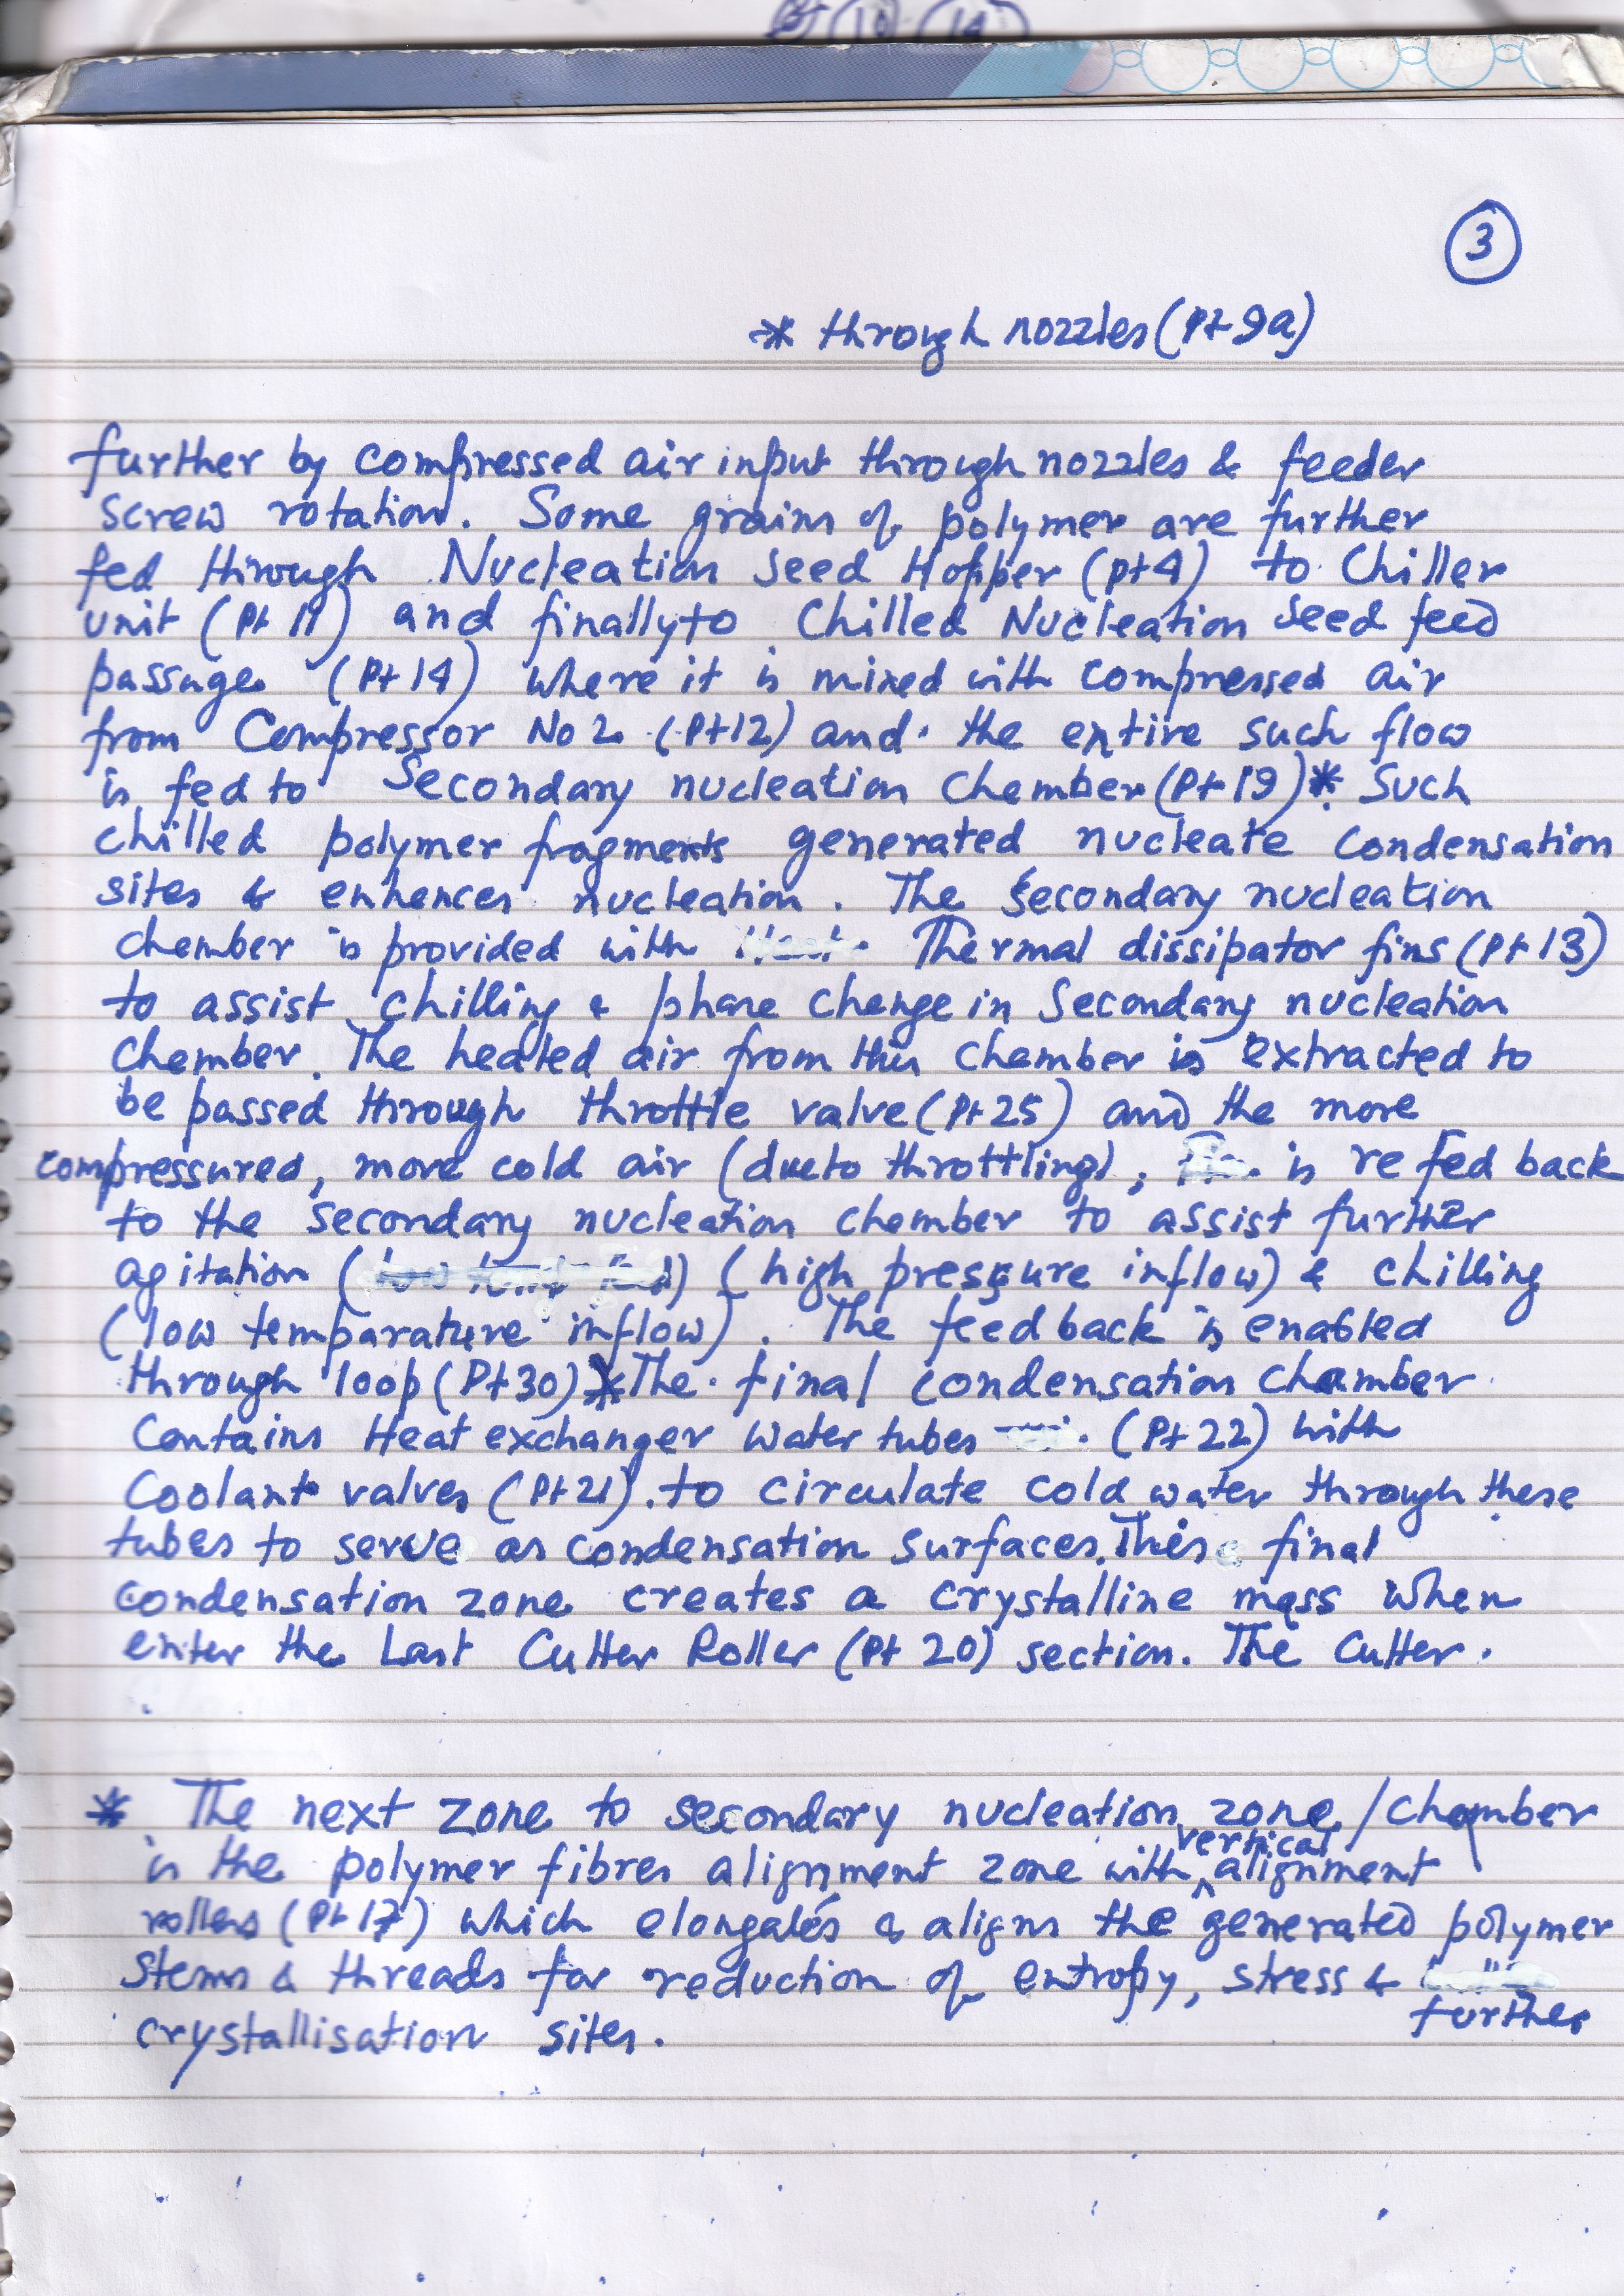 10 14
3
* through nozzles (Pt 9a)
further by compressed air input through nozzles & feeder
screw rotation. Some grains of polymer are further
fed through Nucleation Seed Hopper (pt 4) to Chiller
unit (Pt 11) and finally to Chilled Nucleation Seed feed
passage (Pt 14) where it is mixed with compressed air
from Compressor No 2 (Pt 12) and the entire such flow
is fed to Secondary nucleation Chember (Pt 19) *. Such
chilled polymer fragments generated nucleate condensation
sites & enhences nucleation. The Secondary nucleation
chember is provided with Thermal dissipator fins (Pt 13)
to assist chilling & phase change in Secondary nucleation
Chember. The heated air from this chember is extracted to
be passed through throttle valve (Pt 25) and the more
compressured, more cold air (due to throttling), is re fed back
to the secondary nucleation chember to assist further
agitation ( ) (high pressure inflow) & chilling
(low temparature inflow). The feed back is enabled
through loop (Pt 30) * The final condensation chamber
Contains Heat exchanger water tubes (Pt 22) with
Coolant valves (Pt 21). to circulate cold water through these
tubes to serve as condensation surfaces. This final
condensation zone creates a crystalline mass when
enter the Last Cutter Roller (Pt 20) section. The Cutter.
* The next zone to secondary nucleation zone / chamber
is the polymer fibres alignment zone with vertical alignment
rollers (Pt 17) which elongates & aligns the generated polymer
Stems & threads for reduction of entropy, stress &
further
crystallisation sites.